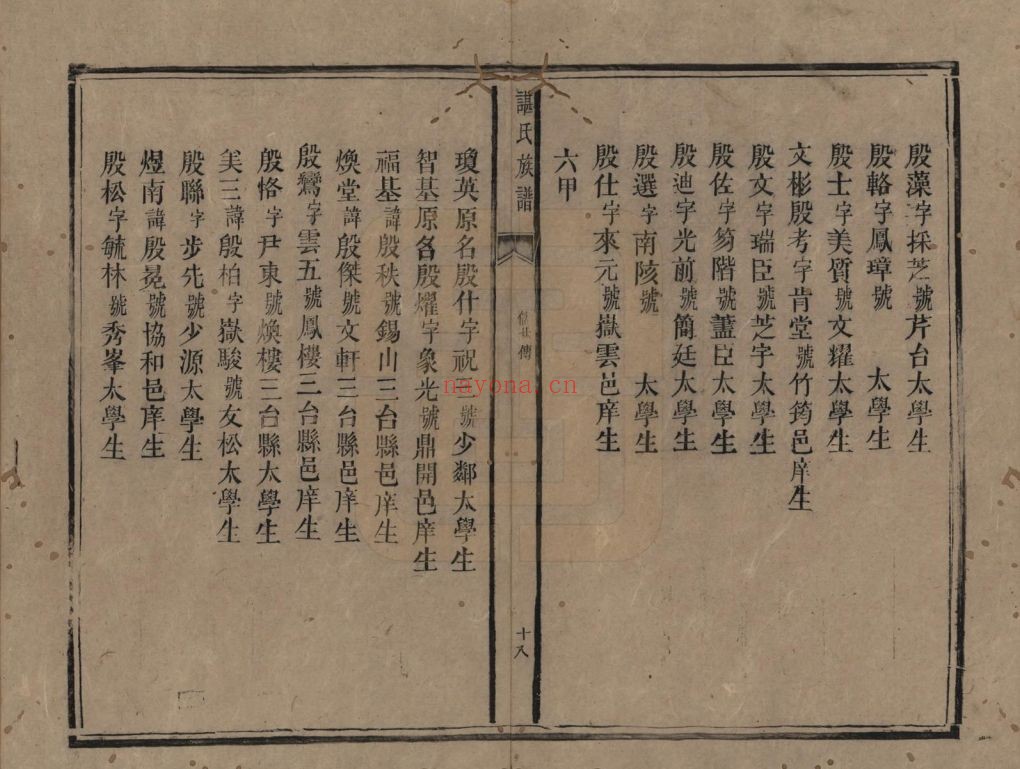 殷藻字採芝號芹台太學生
殷輅字鳳璋號 太學生
殷士字美質號文耀太學生
文彬殷考字肯堂號竹筠邑庠生
殷文字瑞臣號芝宇太學生
殷佐字笏階號藎臣太學生
殷迪字光前號簡廷太學生
殷選字南陔號 太學生
殷仕字來元號嶽雲邑庠生
六甲
諶氏族譜
傳
十八
瓊英原名殷什字祝三號少鄰太學生
智基原名殷燿字象光號鼎開邑庠生
福基諱殷秩號錫山三台縣邑庠生
煥堂諱殷傑號文軒三台縣邑庠生
殷鸞字雲五號鳳樓三台縣邑庠生
殷恪字尹東號煥樓三台縣太學生
美三諱殷柏字嶽駿號友松太學生
殷聯字步先號少源太學生
煜南諱殷冕號協和邑庠生
殷松字毓林號秀峯太學生
nayona.cn